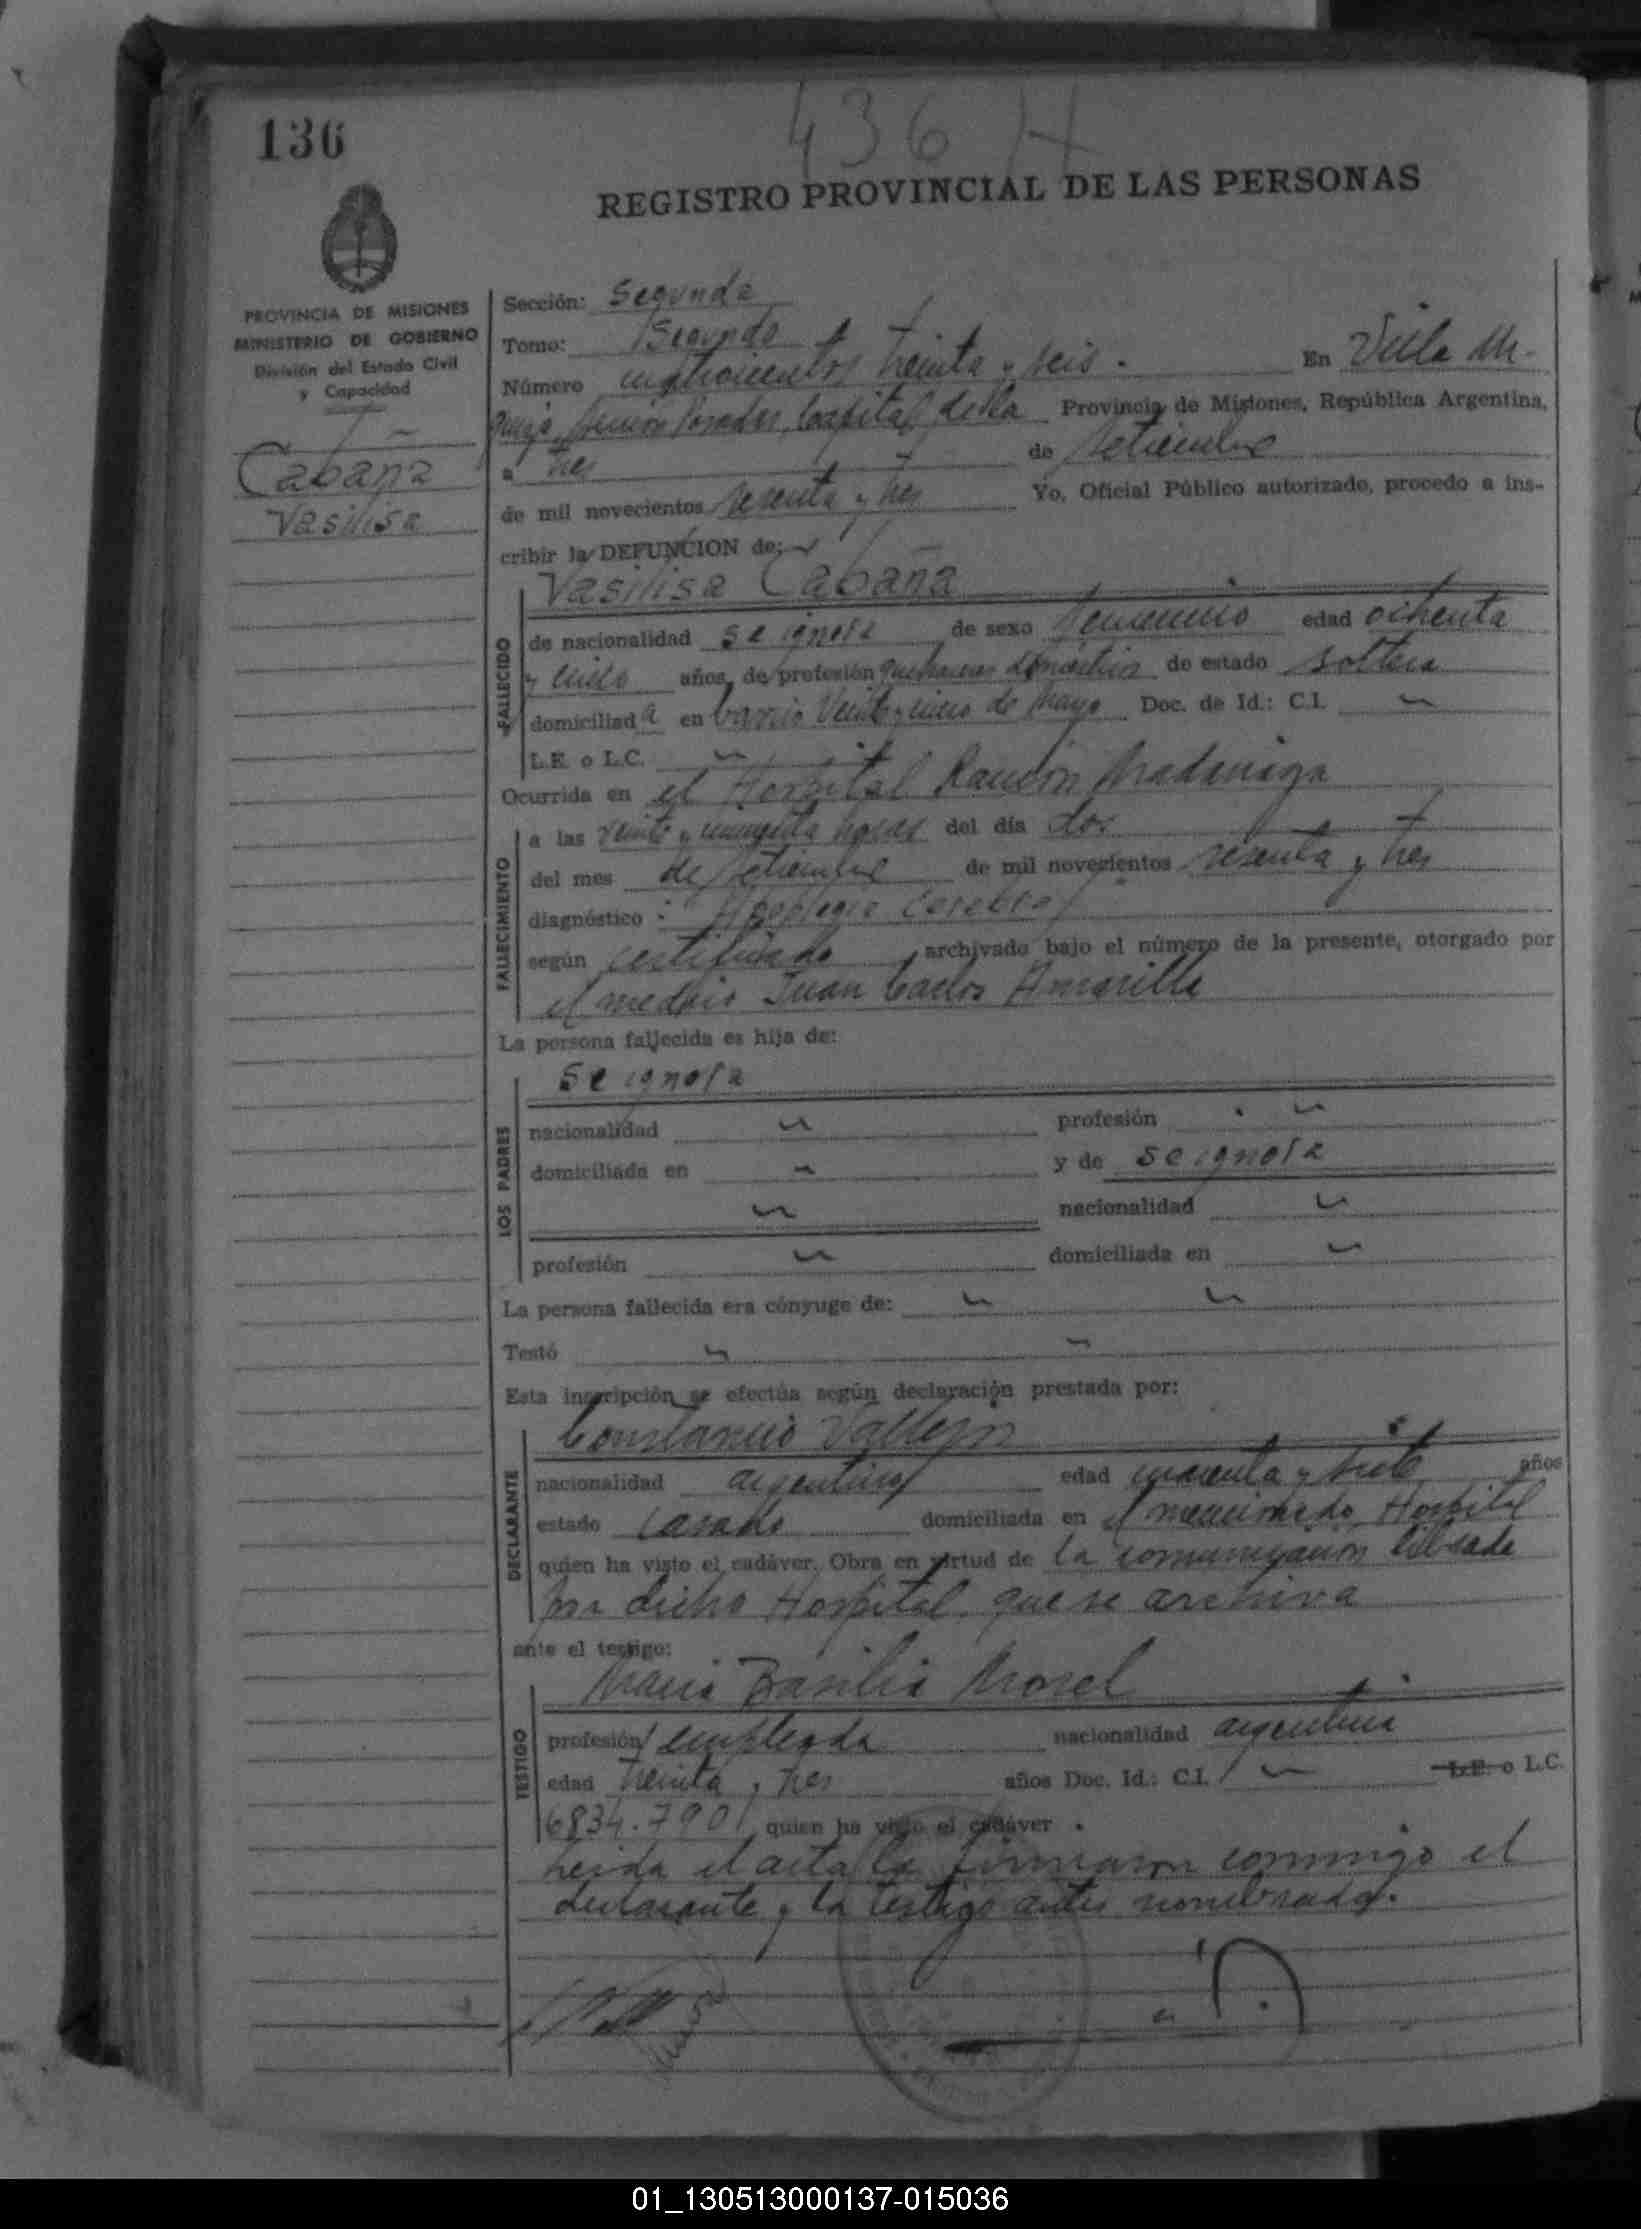 436 H
136
REGISTRO PROVINCIAL DE LAS PERSONAS
PROVINCIA DE MISIONES
MINISTERIO DE GOBIERNO
División del Estado Civil
y Capacidad
Cabaña
Vasilisa
Sección: Segunda
Tomo: Segundo
Número cuatrocientos treinta y seis. En Villa Ur-
quiza, Posadas, Capital de la Provincia de Misiones, República Argentina,
a tres de setiembre
de mil novecientos sesenta y tres Yo, Oficial Público autorizado, procedo a ins-
cribir la DEFUNCION de:
Vasilisa Cabaña
FALLECIDO
de nacionalidad se ignora de sexo femenino edad ochenta
y cinco años, de profesión quehaceres domésticos de estado soltera
domiciliada en barrio Veinticinco de Mayo Doc. de Id.: C.I. —
L.E. o L.C. —
Ocurrida en el Hospital Ramón Madariaga
FALLECIMIENTO
a las veinte y cincuenta horas del día dos
del mes de setiembre de mil novecientos sesenta y tres
diagnóstico: Apoplegia cerebral
según certificado archivado bajo el número de la presente, otorgado por
el medico Juan Carlos Amarilla
La persona fallecida es hija de:
LOS PADRES
se ignora
nacionalidad — profesión —
domiciliada en — y de se ignora
— nacionalidad —
profesión — domiciliada en —
La persona fallecida era cónyuge de: — —
Testó — —
Esta inscripción se efectúa según declaración prestada por:
DECLARANTE
Constancio Vallejos
nacionalidad argentino edad cuarenta y siete años
estado casado domiciliada en el mencionado Hospital
quien ha visto el cadáver. Obra en virtud de la comunicación librada
por dicho Hospital que se archiva
ante el testigo:
TESTIGO
María Basilia Morel
profesión empleada nacionalidad argentina
edad treinta y tres años Doc. Id.: C.I. — L.E. o L.C.
6834.790 quien ha visto el cadáver.
Leída el acta la firmaron conmigo el
declarante y la testigo antes nombrados.
01_130513000137-015036